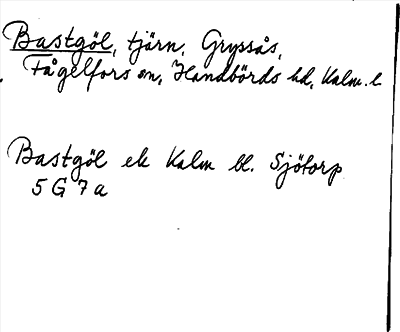 Bastgöl, tjärn, Gryssås,
Fågelfors sn, Handbörds hd, Kalm. l.
Bastgöl ek Kalm bl. Sjötorp
5 G 7 a